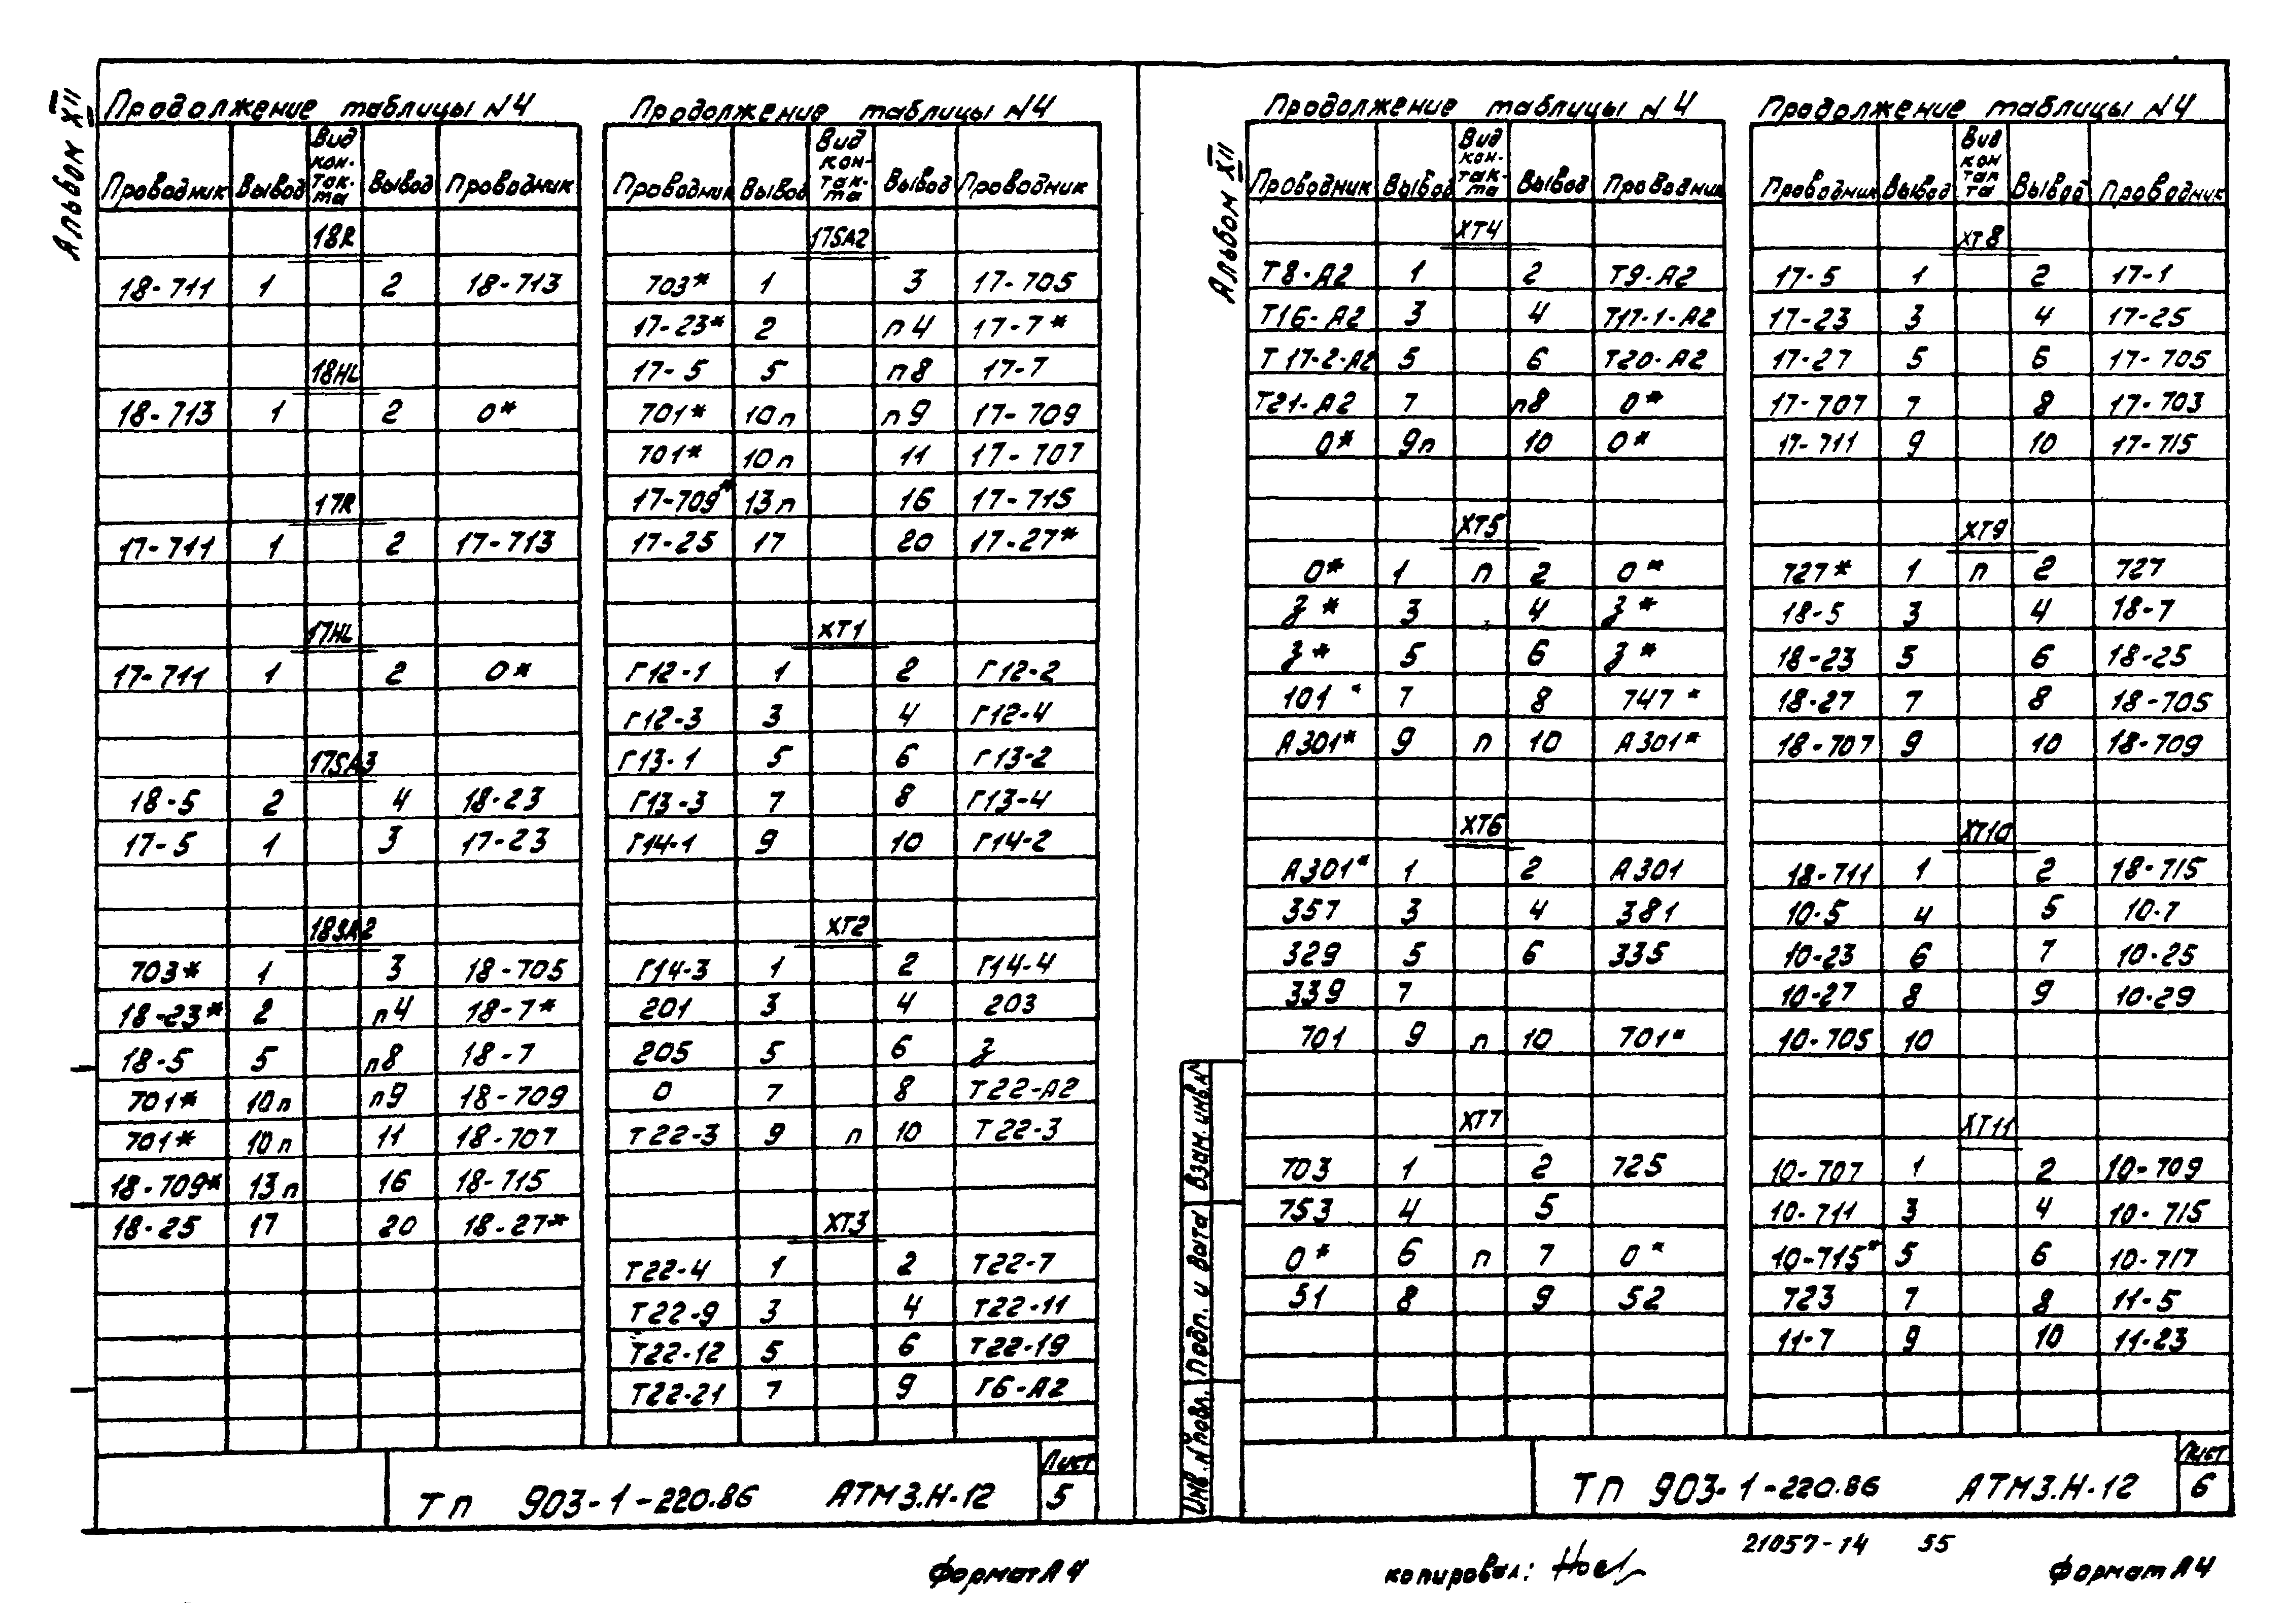 Альбом XII
Продолжение таблицы N4
Проводник Вывод Вид кон-так-та Вывод Проводник
18R
18-711 1 2 18-713
18HL
18-713 1 2 0*
17R
17-711 1 2 17-713
17HL
17-711 1 2 0*
17SA3
18-5 2 4 18-23
17-5 1 3 17-23
18SA2
703* 1 3 18-705
18-23* 2 п4 18-7*
18-5 5 п8 18-7
701* 10п п9 18-709
701* 10п 11 18-707
18-709* 13п 16 18-715
18-25 17 20 18-27*
Продолжение таблицы N4
Проводник Вывод Вид кон-так-та Вывод Проводник
17SA2
703* 1 3 17-705
17-23* 2 п4 17-7*
17-5 5 п8 17-7
701* 10п п9 17-709
701* 10п 11 17-707
17-709* 13п 16 17-715
17-25 17 20 17-27*
XT1
Г12-1 1 2 Г12-2
Г12-3 3 4 Г12-4
Г13-1 5 6 Г13-2
Г13-3 7 8 Г13-4
Г14-1 9 10 Г14-2
XT2
Г14-3 1 2 Г14-4
201 3 4 203
205 5 6 З
0 7 8 Т22-А2
Т22-3 9 п 10 Т22-3
XT3
Т22-4 1 2 Т22-7
Т22-9 3 4 Т22-11
Т22-12 5 6 Т22-19
Т22-21 7 9 Г6-А2
ТП 903-1-220.86 АТМ3.Н-12
Лист
5
Формат А4
Альбом XII
Продолжение таблицы N4
Проводник Вывод Вид кон-так-та Вывод Проводник
XT4
Т8-А2 1 2 Т9-А2
Т16-А2 3 4 Т17-1-А2
Т17-2-А2 5 6 Т20-А2
Т21-А2 7 п8 0*
0* 9п 10 0*
XT5
0* 1 п 2 0*
З* 3 4 З*
З* 5 6 З*
101* 7 8 747*
А301* 9 п 10 А301*
XT6
А301* 1 2 А301
357 3 4 381
329 5 6 335
339 7
701 9 п 10 701*
XT7
703 1 2 725
753 4 5
0* 6 п 7 0*
51 8 9 52
Продолжение таблицы N4
Проводник Вывод Вид кон так та Вывод Проводник
XT8
17-5 1 2 17-1
17-23 3 4 17-25
17-27 5 6 17-705
17-707 7 8 17-703
17-711 9 10 17-715
XT9
727* 1 п 2 727
18-5 3 4 18-7
18-23 5 6 18-25
18-27 7 8 18-705
18-707 9 10 18-709
XT10
18-711 1 2 18-715
10-5 4 5 10-7
10-23 6 7 10-25
10-27 8 9 10-29
10-705 10
XT11
10-707 1 2 10-709
10-711 3 4 10-715
10-715* 5 6 10-717
723 7 8 11-5
11-7 9 10 11-23
Инв.N подл. Подп. и дата Взам.инв.N
ТП 903-1-220.86 АТМ3.Н-12
Лист
6
21057-14 55
копировал:
Формат А4